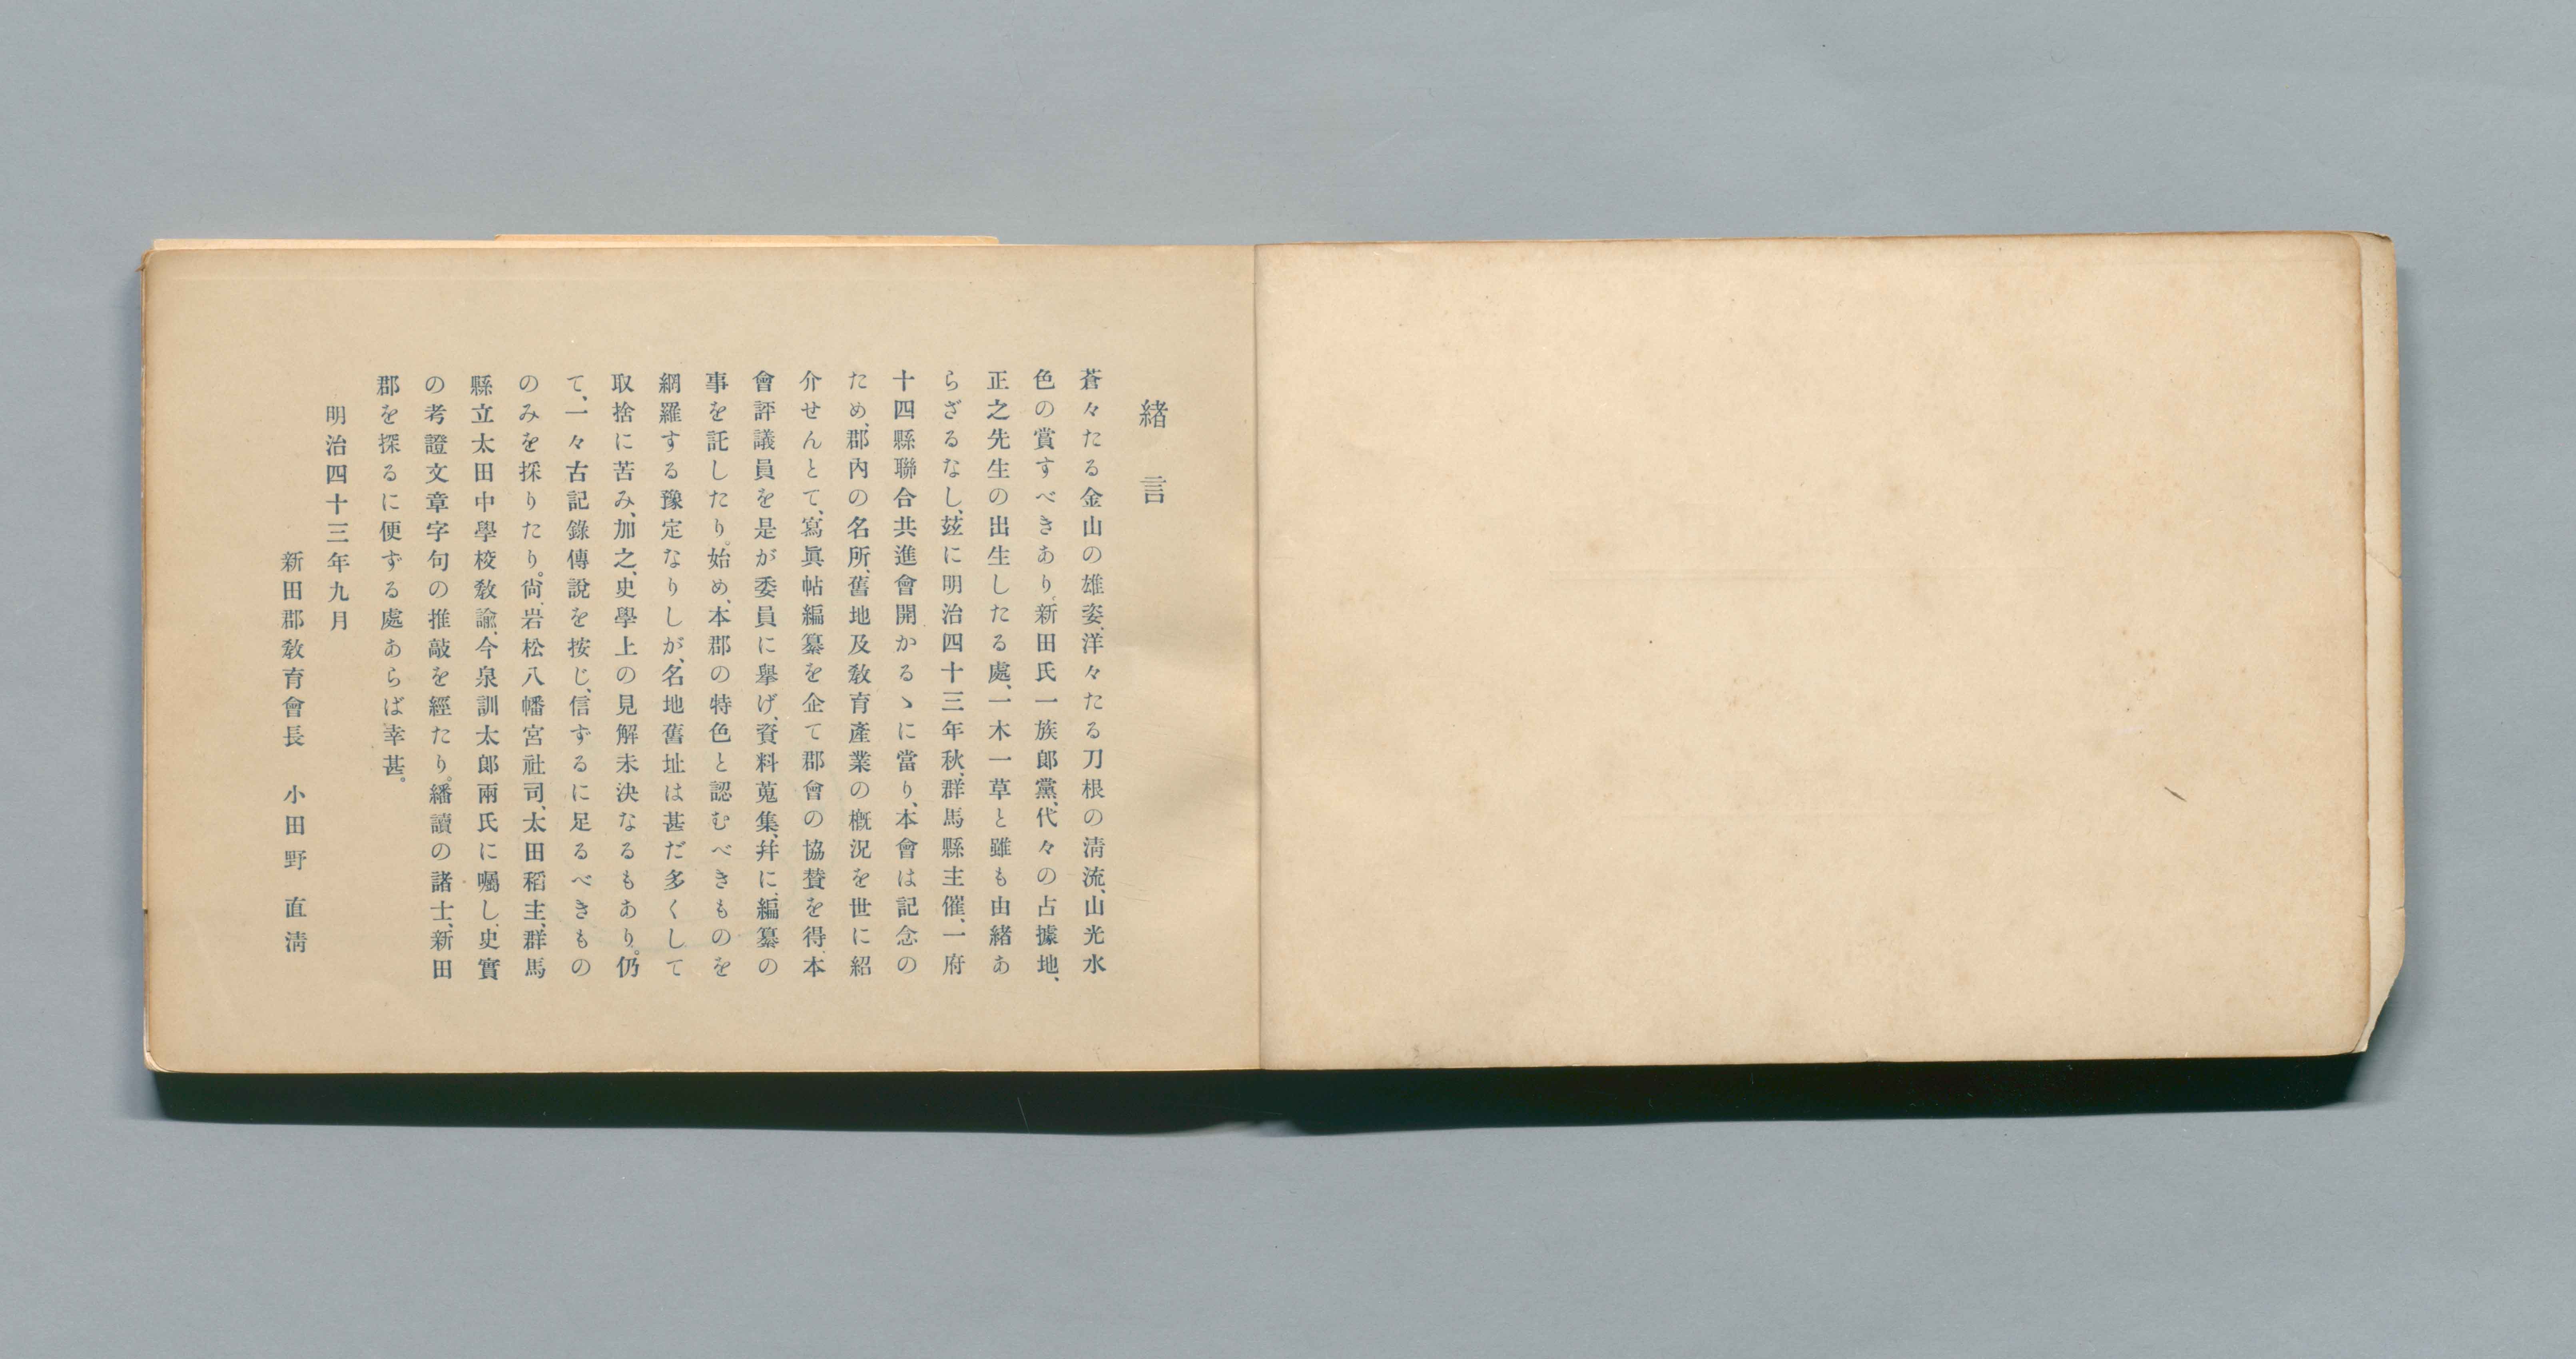 緒言
蒼々たる金山の雄姿、洋々たる刀根の淸流、山光水
色の賞すべきあり。新田氏一族郎黨、代々の占據地、
正之先生の出生したる處、一木一草と雖も由緒あ
らざるなし、玆に明治四十三年秋、群馬縣主催、一府
十四縣聯合共進會開かるゝに當り、本會は記念の
ため、郡內の名所、舊地及敎育產業の槪況を世に紹
介せんとて、寫眞帖編纂を企て郡會の協賛を得、本
會評議員を是が委員に擧げ、資料蒐集、幷に、編纂の
事を託したり。始め、本郡の特色と認むべきものを
網羅する豫定なりしが、名地舊址は甚だ多くして
取捨に苦み、加之、史學上の見解未決なるもあり。仍
て、一々古記錄傳說を按じ、信ずるに足るべきもの
のみを採りたり。尙、岩松八幡宮社司、太田稻主、群馬
縣立太田中學校敎諭、今泉訓太郎兩氏に囑し、史實
の考證文章字句の推敲を經たり。繙讀の諸士、新田
郡を探るに便ずる處あらば幸甚。
明治四十三年九月
新田郡敎育會長 小田野直淸